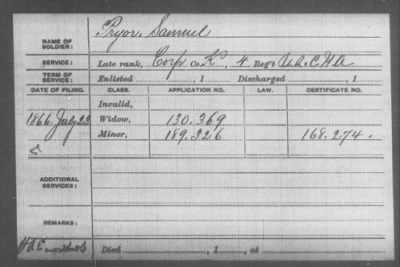 NAME OF SOLDIER: Pryor, Samuel
SERVICE: Late rank, Corp Co. K, 4 Reg't U.S.C.H.A
TERM OF SERVICE: Enlisted , 1 Discharged , 1
DATE OF FILING. CLASS. APPLICATION NO. LAW. CERTIFICATE NO.
Invalid,
1866 July 23 Widow, 130.369
Minor, 189.226 168.274.
ADDITIONAL SERVICES:
REMARKS:
Died , 1 , at